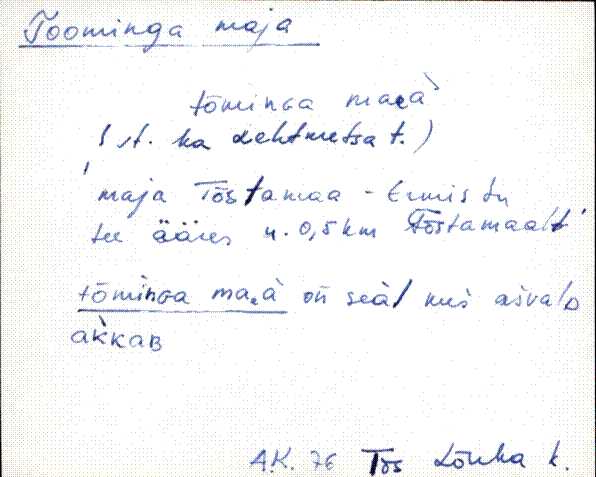 Toominga maja
tõminɢa maeà
(st. ka Lehtmetsa t.)
'maja Tõstamaa - Ermistu
tee ääres u. 0,5 km Tõstamaalt'
tõminɢa maeà on seal kus aśvalD
akkaB
A.K. 76 Tõs Lõuka k.